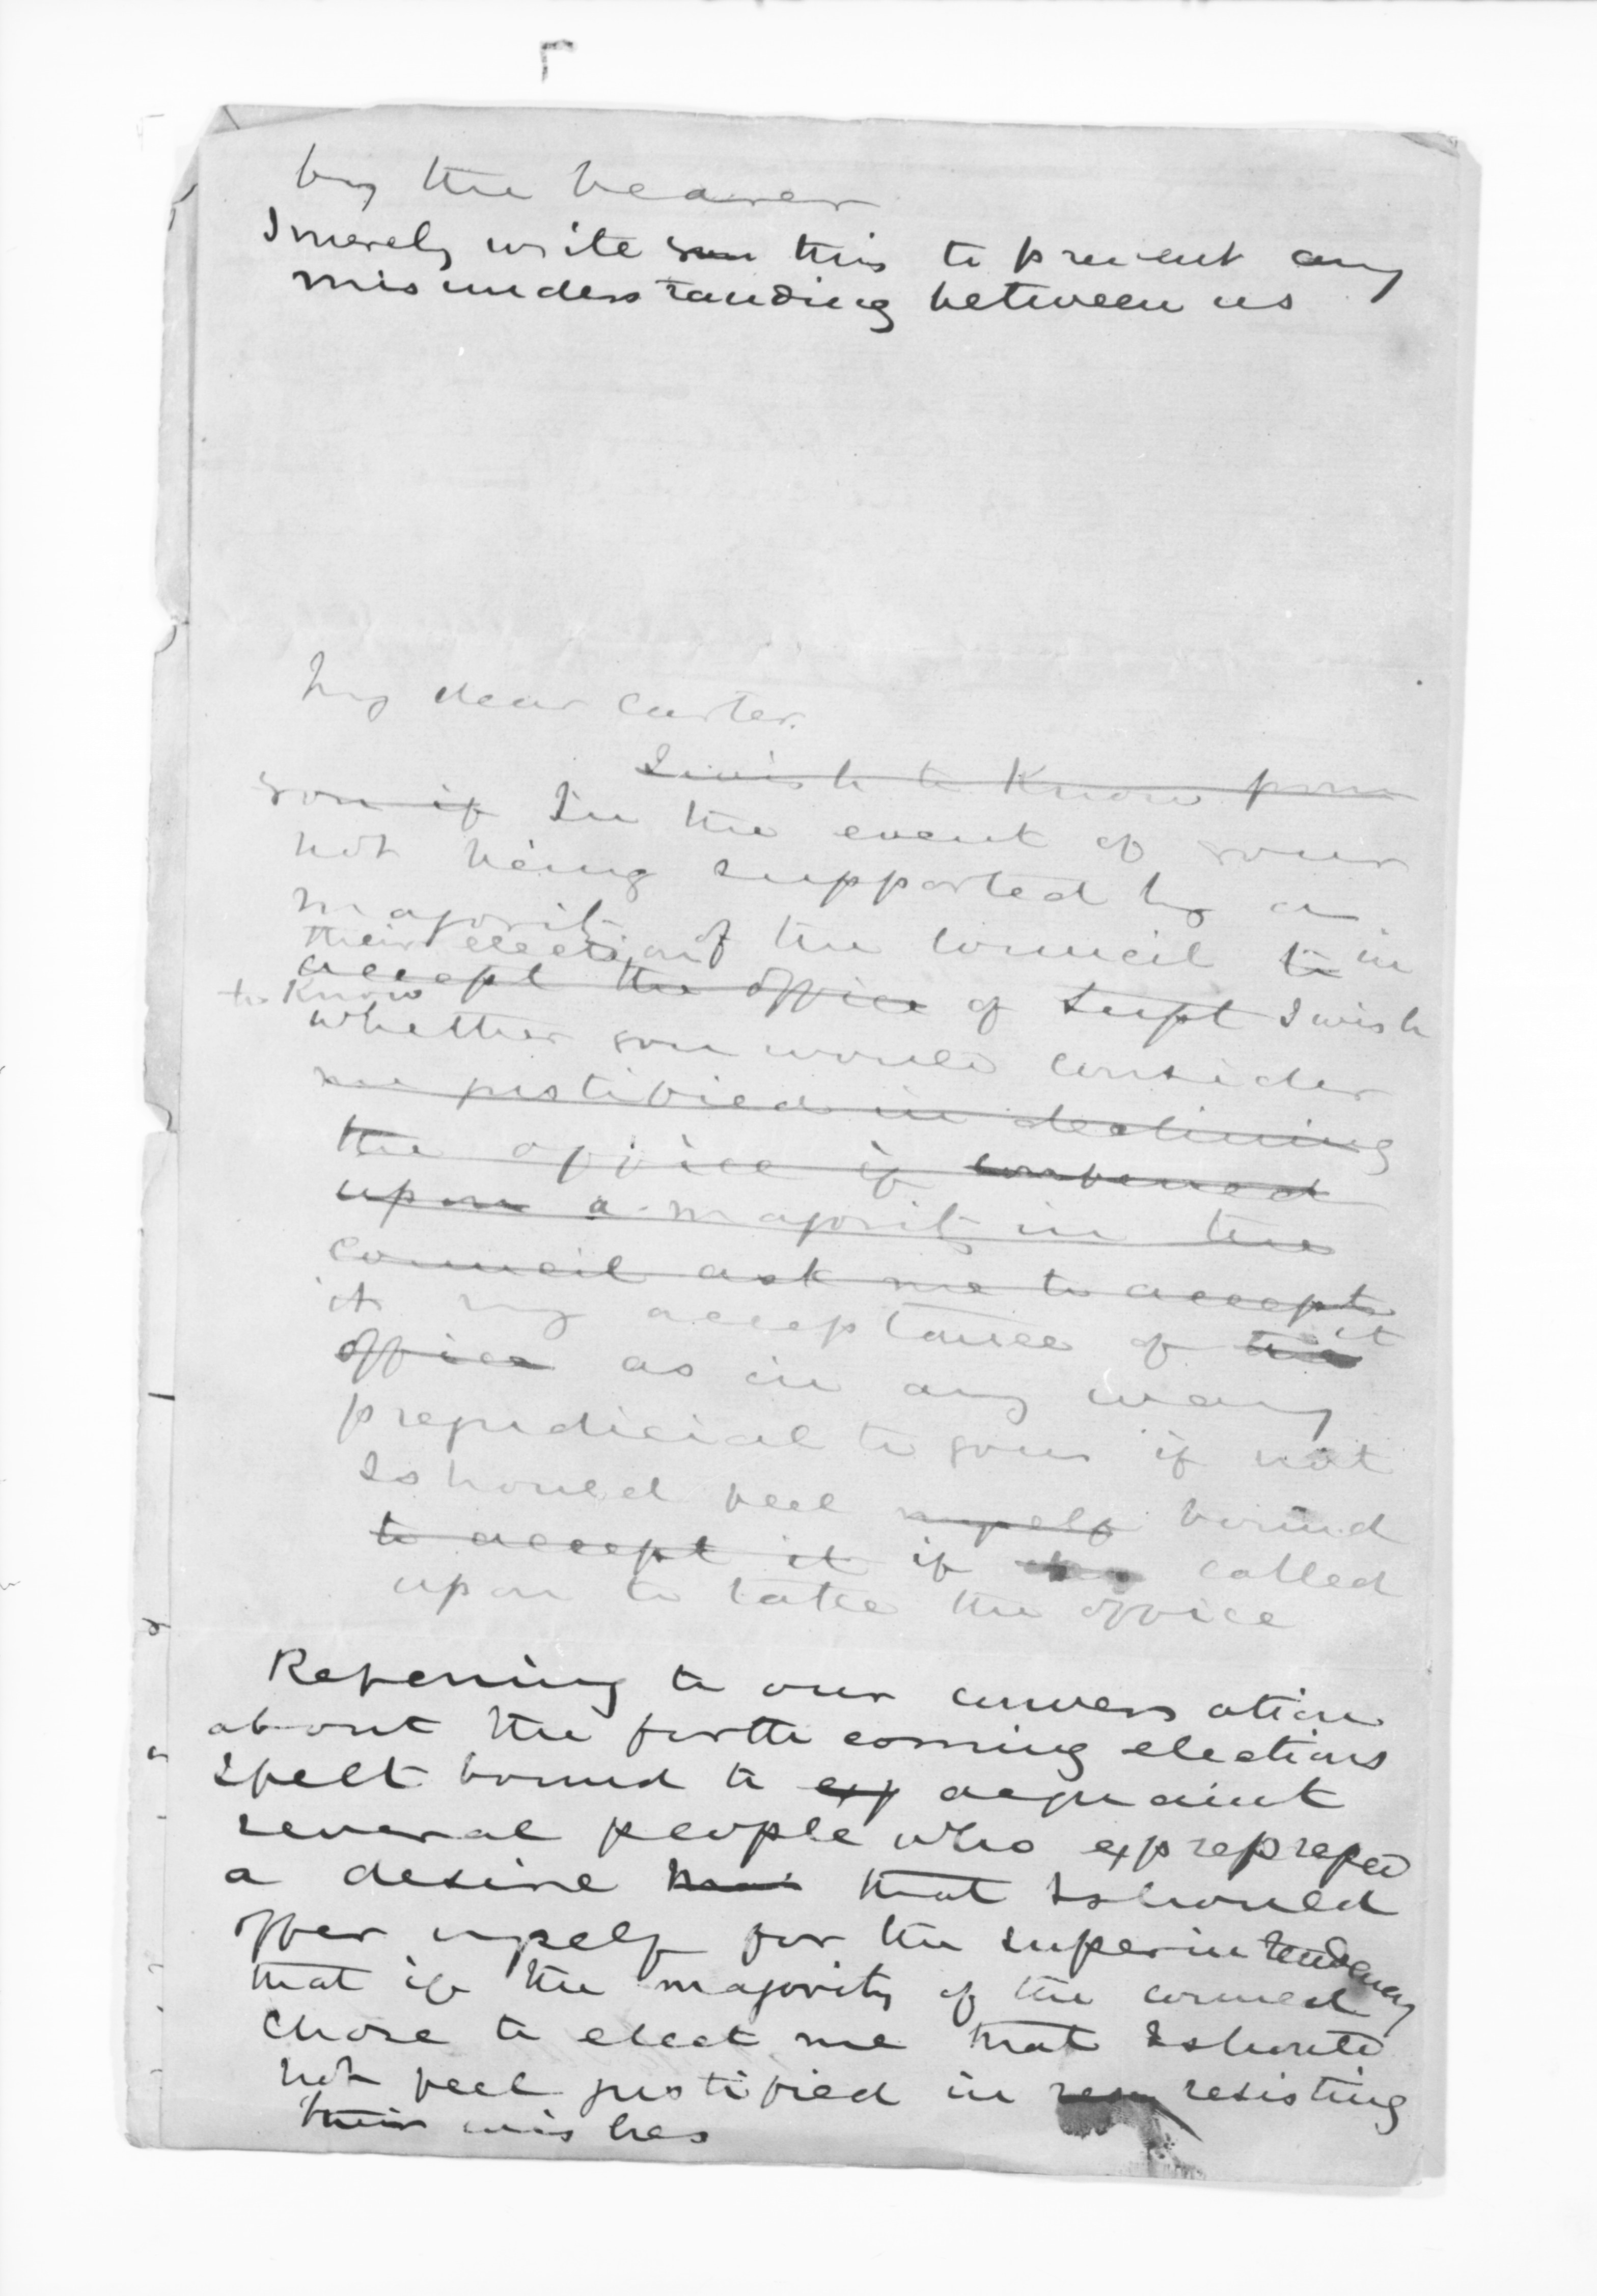 by the bearer
I merely write you this to prevent any
misunderstanding between us
My dear Carter.
I wish to know from
you if In the event of your
not being supported by a
majority of the council to in
their election of
accept the office of Supt I wish
to know
whether you would consider
me justified in declining
the office if conferred
upon a majority in the
council ask me to accept
it my acceptance of the it
office as in any way
prejudicial to yours if not
I should feel myself bound
to accept it if called
upon to take the office
Referring to our conversation
about the forthcoming elections
I felt bound to exp acquaint
several people who exprepreped
a desire that I should
offer myself for the superintendency
that if the majority of the council
chose to elect me that I should
not feel justified in resisting
their wishes